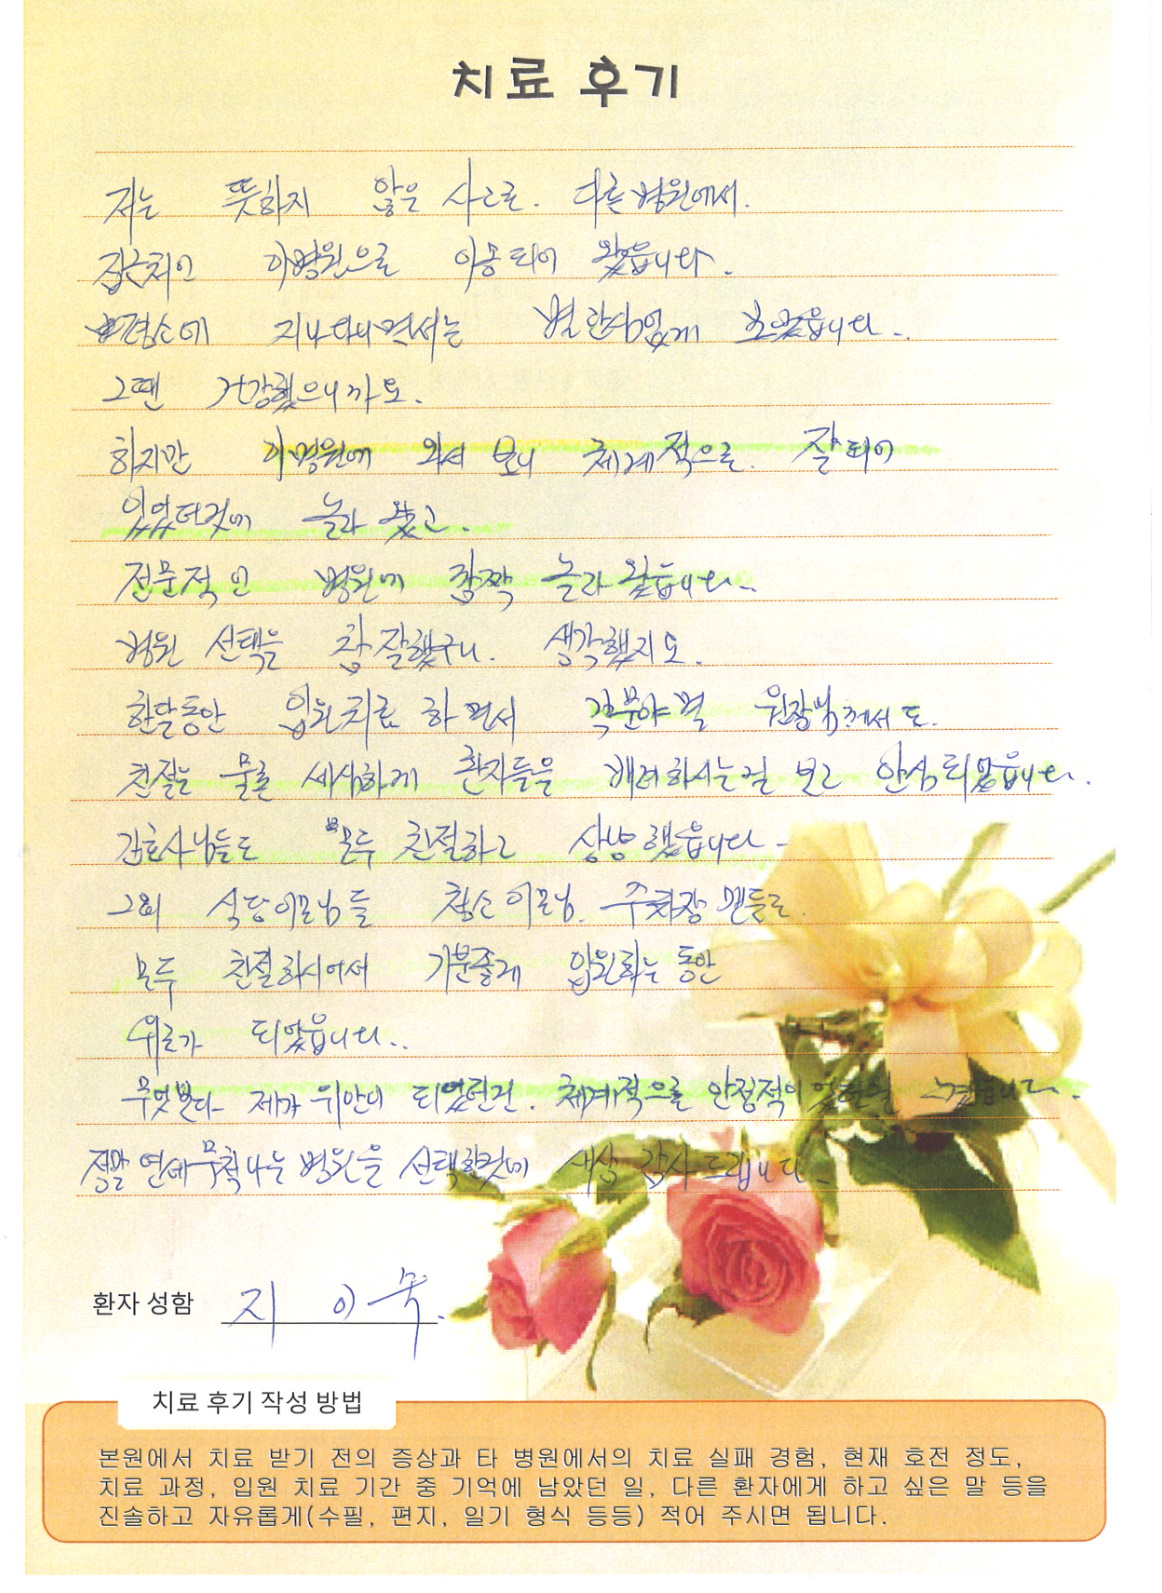 치료 후기
저는 뜻하지 않은 사고로. 다른 병원에서.
집근처인 이병원으로 이동되어 왔읍니다.
평소에 지나다니면서는 별관심없게 보았읍니다.
그땐 건강했으니까요.
하지만 이병원에 와서 보니 체계적으로. 잘되어
있었던것에 놀라 왔고.
전문적인 병원에 깜짝 놀라 왔읍니다..
병원 선택을 참 잘했구나. 생각했지요.
한달동안 입원치료 하면서 각분야별 원장님께서도.
친절는 물론 세심하게 환자들을 배려하시는걸 보고 안심되었읍니다.
간호사님들도 모두 친절하고 상냥했읍니다-
그외 식당이모님들 청소이모님. 주차장 맨들도.
모두 친절하시어서 기분좋게 입원하는 동안
위로가 되었읍니다..
무엇보다 제가 위안이 되었던건. 체계적으로 안정적이 느꼈읍니다.
정말 연세무척나는 병원을 선택한것에 새삼 감사드립니다.
환자 성함 지 이숙.
치료 후기 작성 방법
본원에서 치료 받기 전의 증상과 타 병원에서의 치료 실패 경험, 현재 호전 정도,
치료 과정, 입원 치료 기간 중 기억에 남았던 일, 다른 환자에게 하고 싶은 말 등을
진솔하고 자유롭게(수필, 편지, 일기 형식 등등) 적어 주시면 됩니다.